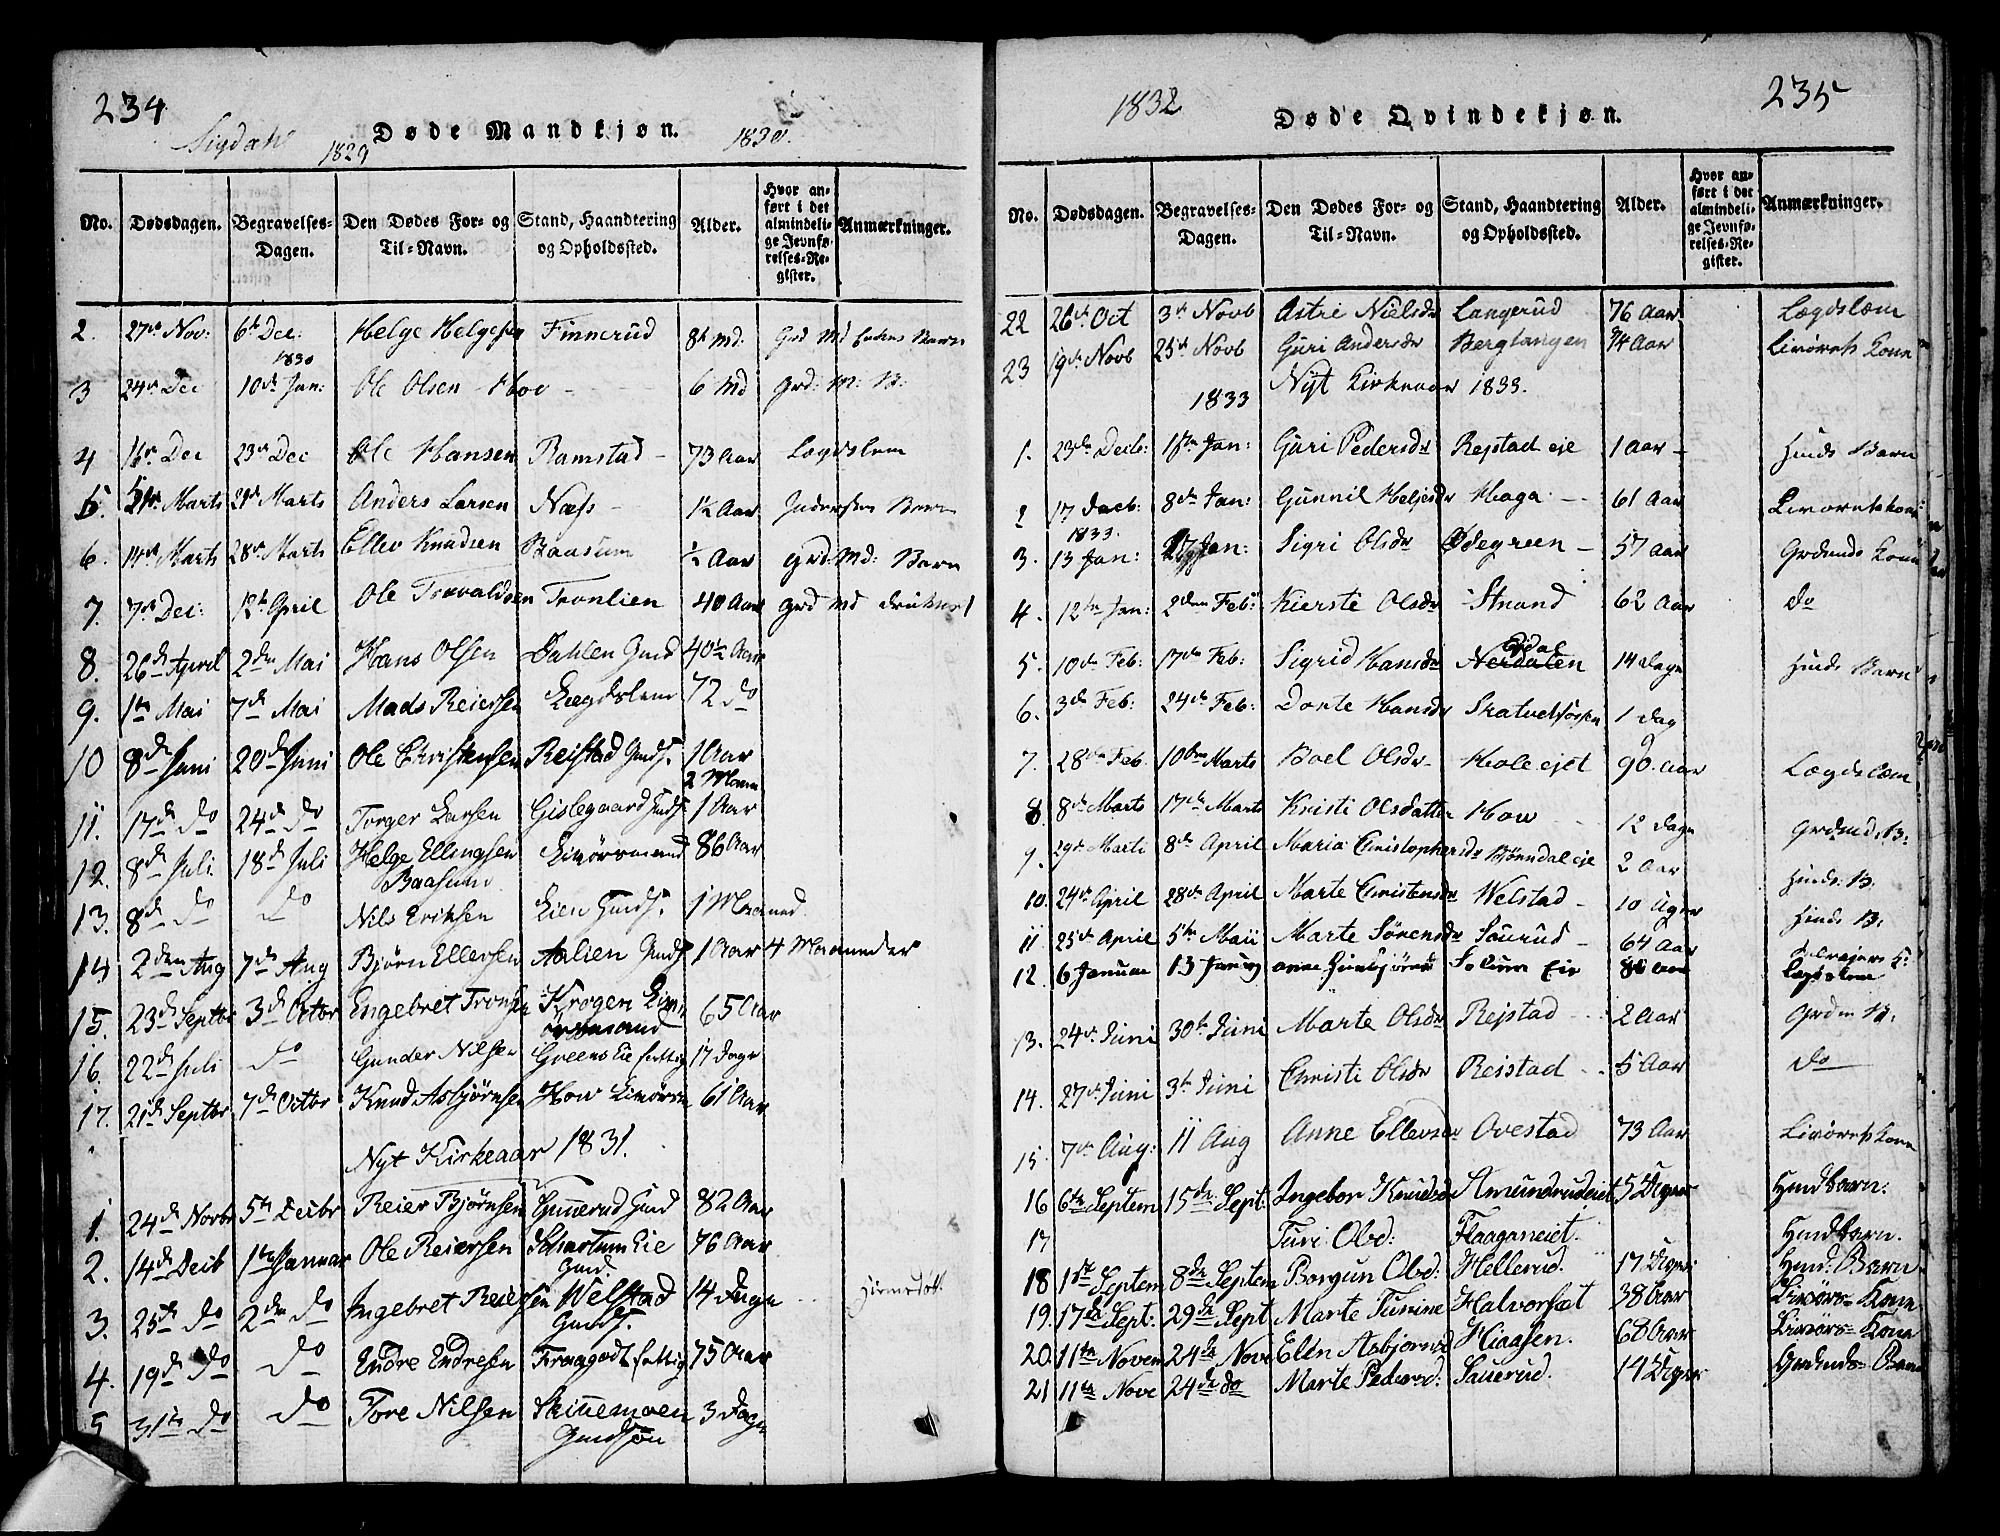 234
Sigdahl 1829 Døde Mandkjøn. 1830.
No. Dødsdagen. Begravelses-Dagen. Den Dødes For- og Til-Navn. Stand, Haandtering og Opholdssted. Alder. Hvor anført i det almindelige Jevnførelses-Register. Anmærkninger.
2. 27de Nov: 6te Dec: Helge Helgesen Finnerud 8t Md. Grd Md Barn
1830
3 24de Dec 10de Jan: Ole Olsen Hov - 6 Md Grd: M: B:
4 Dec 23de Dec Ole Hansen Ramstad - 73 Aar Lægdslem
5. Marts 21de Marts Anders Larsen Næss - 1½ Aar Barn
6. 14de Marts 28de Marts Ellev Knudsen Baasum ½ Aar grd: Md: Barn
7. 7de Dec: 12te April Ole Torvaldsen Tronlien 40 Aar Grd Md
8. 26de April 2den Mai Hans Olsen Dahlen Gmd 40½ Aar
9. 1te Mai 7de Mai Mads Reiersen Lægdslem 72 do
10 8de Juni 20de Juni Ole Christensen Reistad Gmds. 1 Aar
2 Maan
11. 17de do 24de do Torger Larsen Gislegaard Gmds 1 Aar
12. 8de Juli 18de Juli Helge Ellingsen Livørsmand 86 Aar
Baasum
13. 8de do do Nils Eriksen Lien Gmds. 1 Maaned
14 2den Aug 7de Aug Bjørn Ellefsen Aalien Gmds 1 Aar 4 Maaneder
15. 23de Septbr 3de Octbr Engebret Tronsen Krogen Liv- 65 Aar
ørsmand
16. 22de Juli do Gunder Nilsen Greens Eie fattig 17 Dage
17. 21de Septbr 7de Octbr Knud Asbjørnsen How Livørsm 61 Aar
Nyt Kirkeaar 1831.
1. 24de Novbr 5te Decbr Reier Bjørnsen Gunnerud Gmd 82 Aar
2. 14de Decb 1te Januar Ole Reiersen Schartum Eie 76 Aar
Gmd.
3. 25de do 2den do Ingebret Reiersen Welstad 14 Dage
Gmds.
4. 19de do do Endre Endresen Fraagodt fattig 75 Aar
5 31te do do Tore Nilsen Skinnemoen 3 Dage
Gmdsøn
235
1832 Døde Qvindekjøn.
No. Dødsdagen. Begravelses-Dagen. Den Dødes For- og Til-Navn. Stand, Haandtering og Opholdssted. Alder. Hvor anført i det almindelige Jevnførelses-Register. Anmærkninger.
22 26de Oct 3de Novb Astri Nielsdr Langerud 76 Aar Lægdslæm
23 19de Novb 25de Novb Guri Andersdr Berglangen 74 Aar Livørets Kone
1833 Nyt Kirkeaar 1833.
1. 23de Decb: 1ste Jan: Guri Pedersdr Rejstad eje 1 Aar - Husds Barn
2 17 Decb: 8de Jan: Gunnil Heljesdr Haga - 61 Aar Livøretskone
1833.
3. 13 Jan: Jan: Sigri Olsdr Ødegreen - 57 Aar Grdmds Kone
4. 12te Jan: 2den Feb: Kierste Olsdr Strand 62 Aar do
5. 10de Feb: 17de Feb: Sigrid Hansdr Nerdalen 14 Dage Husds Barn
6. 3de Feb: 24de Feb: Dorte Hansdr 1 Dag
7. 28de Feb. 10de Marts Boel Olsdr Hole ejet 90 Aar Lægdslæm
8. 8de Marts 17de Marts Kristi Olsdatter How 12 Dage Grdmd. B:
9. 29de Marts 8de April Maria Christophersdr Bjørndal eje 2 Aar Husds: B.
10. 24de April 28de April Marte Christensdr Welstad - 10 Uger Husds B.
11 25de April 5te Maii Marte Sørensdr Saurud - 64 Aar
12. 6 Januar 13 Januar Anne Solum Eie Aar Lægdslem
13. 24de Juni 30te Juni Marte Olsdr Rejstad 2 Aar Grdm B.
14. 27de Juni 3te Juni Christi Olsdr Reistad 5 Aar do
15. 7de Aug: 11 Aug Anne Ellevsdr Ovestad 73 Aar Livørets Kone
16 6te Septem 15de Sept: Ingebor Knudsdr Amundrudeiet 5 Uger Husdbarn.
17 Turi Olsd: Flaaganeiet. Husdbarn.
18 1ste Septem 8de Septem Borgun Olsd: Hellerud. 17 Uger Husd: Barn
19. 17de Sept: 29de Sept Marte Turine Halvorsæt 38 Aar Livørs Kone
20. 11te Novem 24de Nove Elen Asbjørnsd Hiaasen. 68 Aar Livørs Kone
21 11te Nove 24de do Marte Pedersd: Sauerud. 14 Uger Grdmds Barn